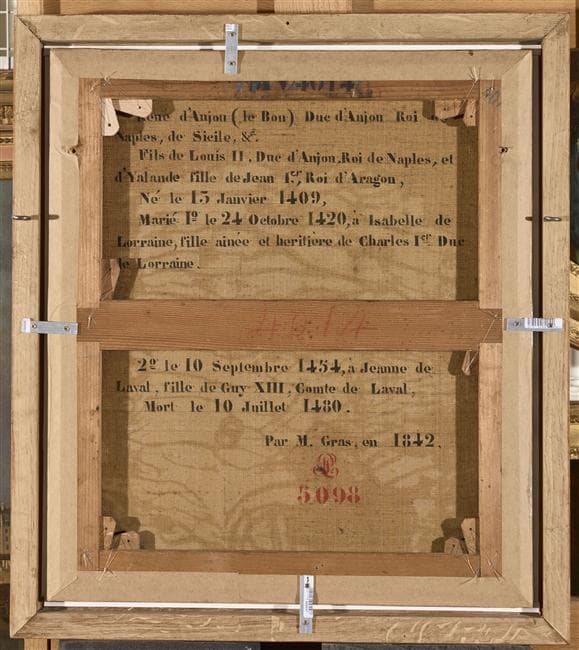 René d'Anjou (le Bon) Duc d'Anjou Roi de
Naples, de Sicile, &c.
Fils de Louis II, Duc d'Anjou, Roi de Naples, et
d'Yalande fille de Jean 1er, Roi d'Aragon,
Né le 15 Janvier 1409,
Marié 1º le 24 Octobre 1420, à Isabelle de
Lorraine, fille ainée et heritière de Charles 1er Duc
de Lorraine.
2º le 10 Septembre 1454, à Jeanne de
Laval, fille de Guy XIII, Comte de Laval,
Mort le 10 Juillet 1480.
Par M. Gras, en 1842.
LP
5098